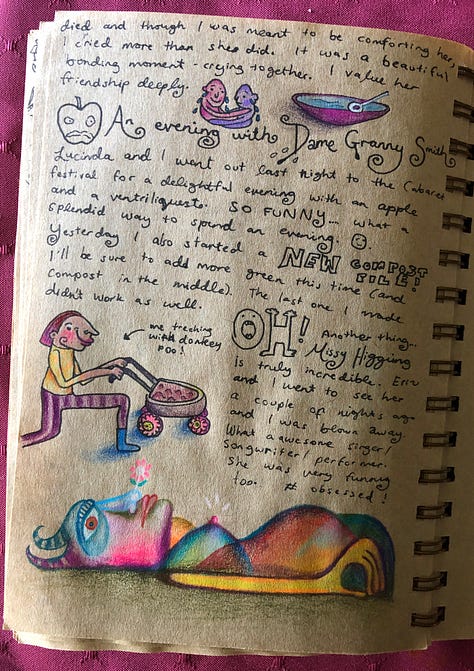 died and though I was meant to be comforting her,
I cried more than she did. It was a beautiful
bonding moment - crying together. I value her
friendship deeply.
An evening with Dame Granny Smith
Lucinda and I went out last night to the Cabaret
festival for a delightful evening with an apple
and a ventriliquests. SO FUNNY... what a
splendid way to spend an evening.
Yesterday I also started a NEW COMPOST
PILE!
I'll be sure to add more green this time (and
compost in the middle). The last one I made
didn't work as well.
me treching
with donkey
poo!
OH! Another thing...
Missy Higgins
is truly incredible. Eriz
and I went to see her
a couple of nights ago
and I was blown away.
What a awesome singer/
songwriter/ performer.
She was very funny
too. # obsessed!